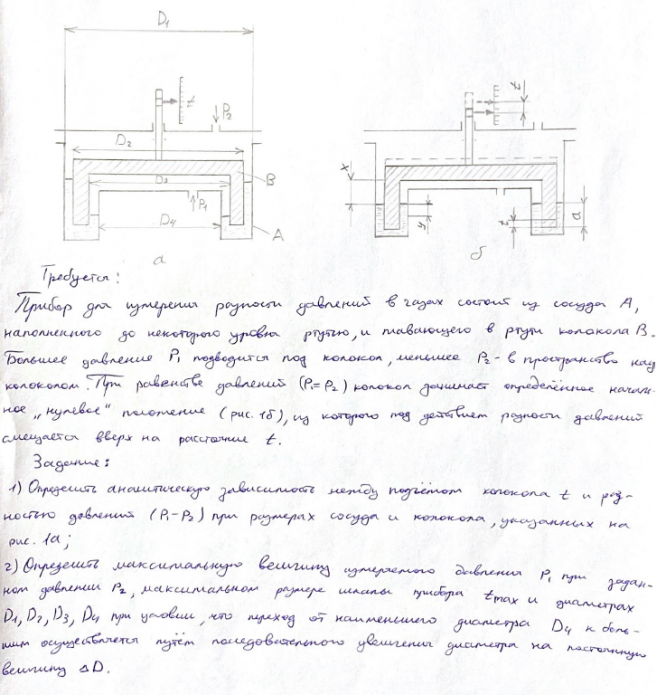 D₁
t
P₂
D₂
B
D₃
P₁
D₄
A
а
t
x
y
t
a
б
Требуется:
Прибор для измерения разности давлений в газах состоит из сосуда А,
наполненного до некоторого уровня ртутью, и плавающего в ртути колокола В.
Большее давление P₁ подводится под колокол, меньшее P₂ - в пространство над
колоколом. При равенстве давлений (P₁=P₂) колокол занимает определённое началь-
ное „нулевое" положение (рис. 1б), из которого под действием разности давлений
смещается вверх на расстояние t.
Задание:
1) Определить аналитическую зависимость между подъёмом колокола t и раз-
ностью давлений (P₁-P₂) при размерах сосуда и колокола, указанных на
рис. 1а;
2) Определить максимальную величину измеряемого давления P₁ при задан-
ном давлении P₂, максимальном размере шкалы прибора tmax и диаметрах
D₁, D₂, D₃, D₄ при условии, что переход от наименьшего диаметра D₄ к боль-
шим осуществляется путём последовательного увеличения диаметра на постоянную
величину ΔD.